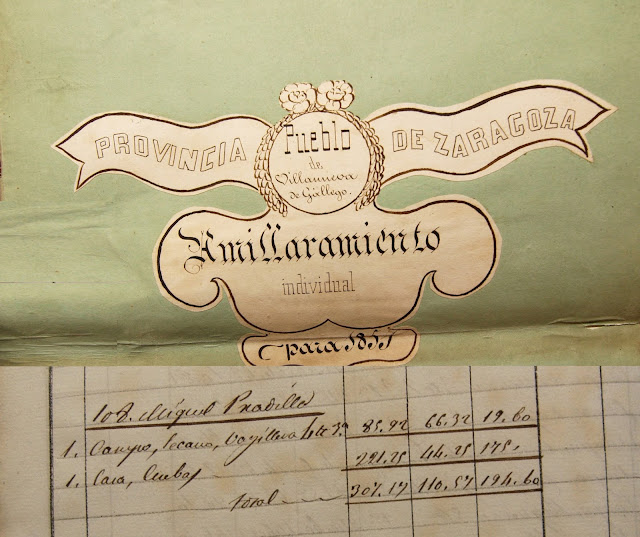 PROVINCIA
DE ZARAGOZA
Pueblo
de
Villanueva
de Gállego.
Amillaramiento
individual
para
108. Miguel Pradilla
1. Campo, Secano, 85.92 66.32 19.60
1. Casa, 221.25 44.25 175.
Total 307.17 110.57 194.60